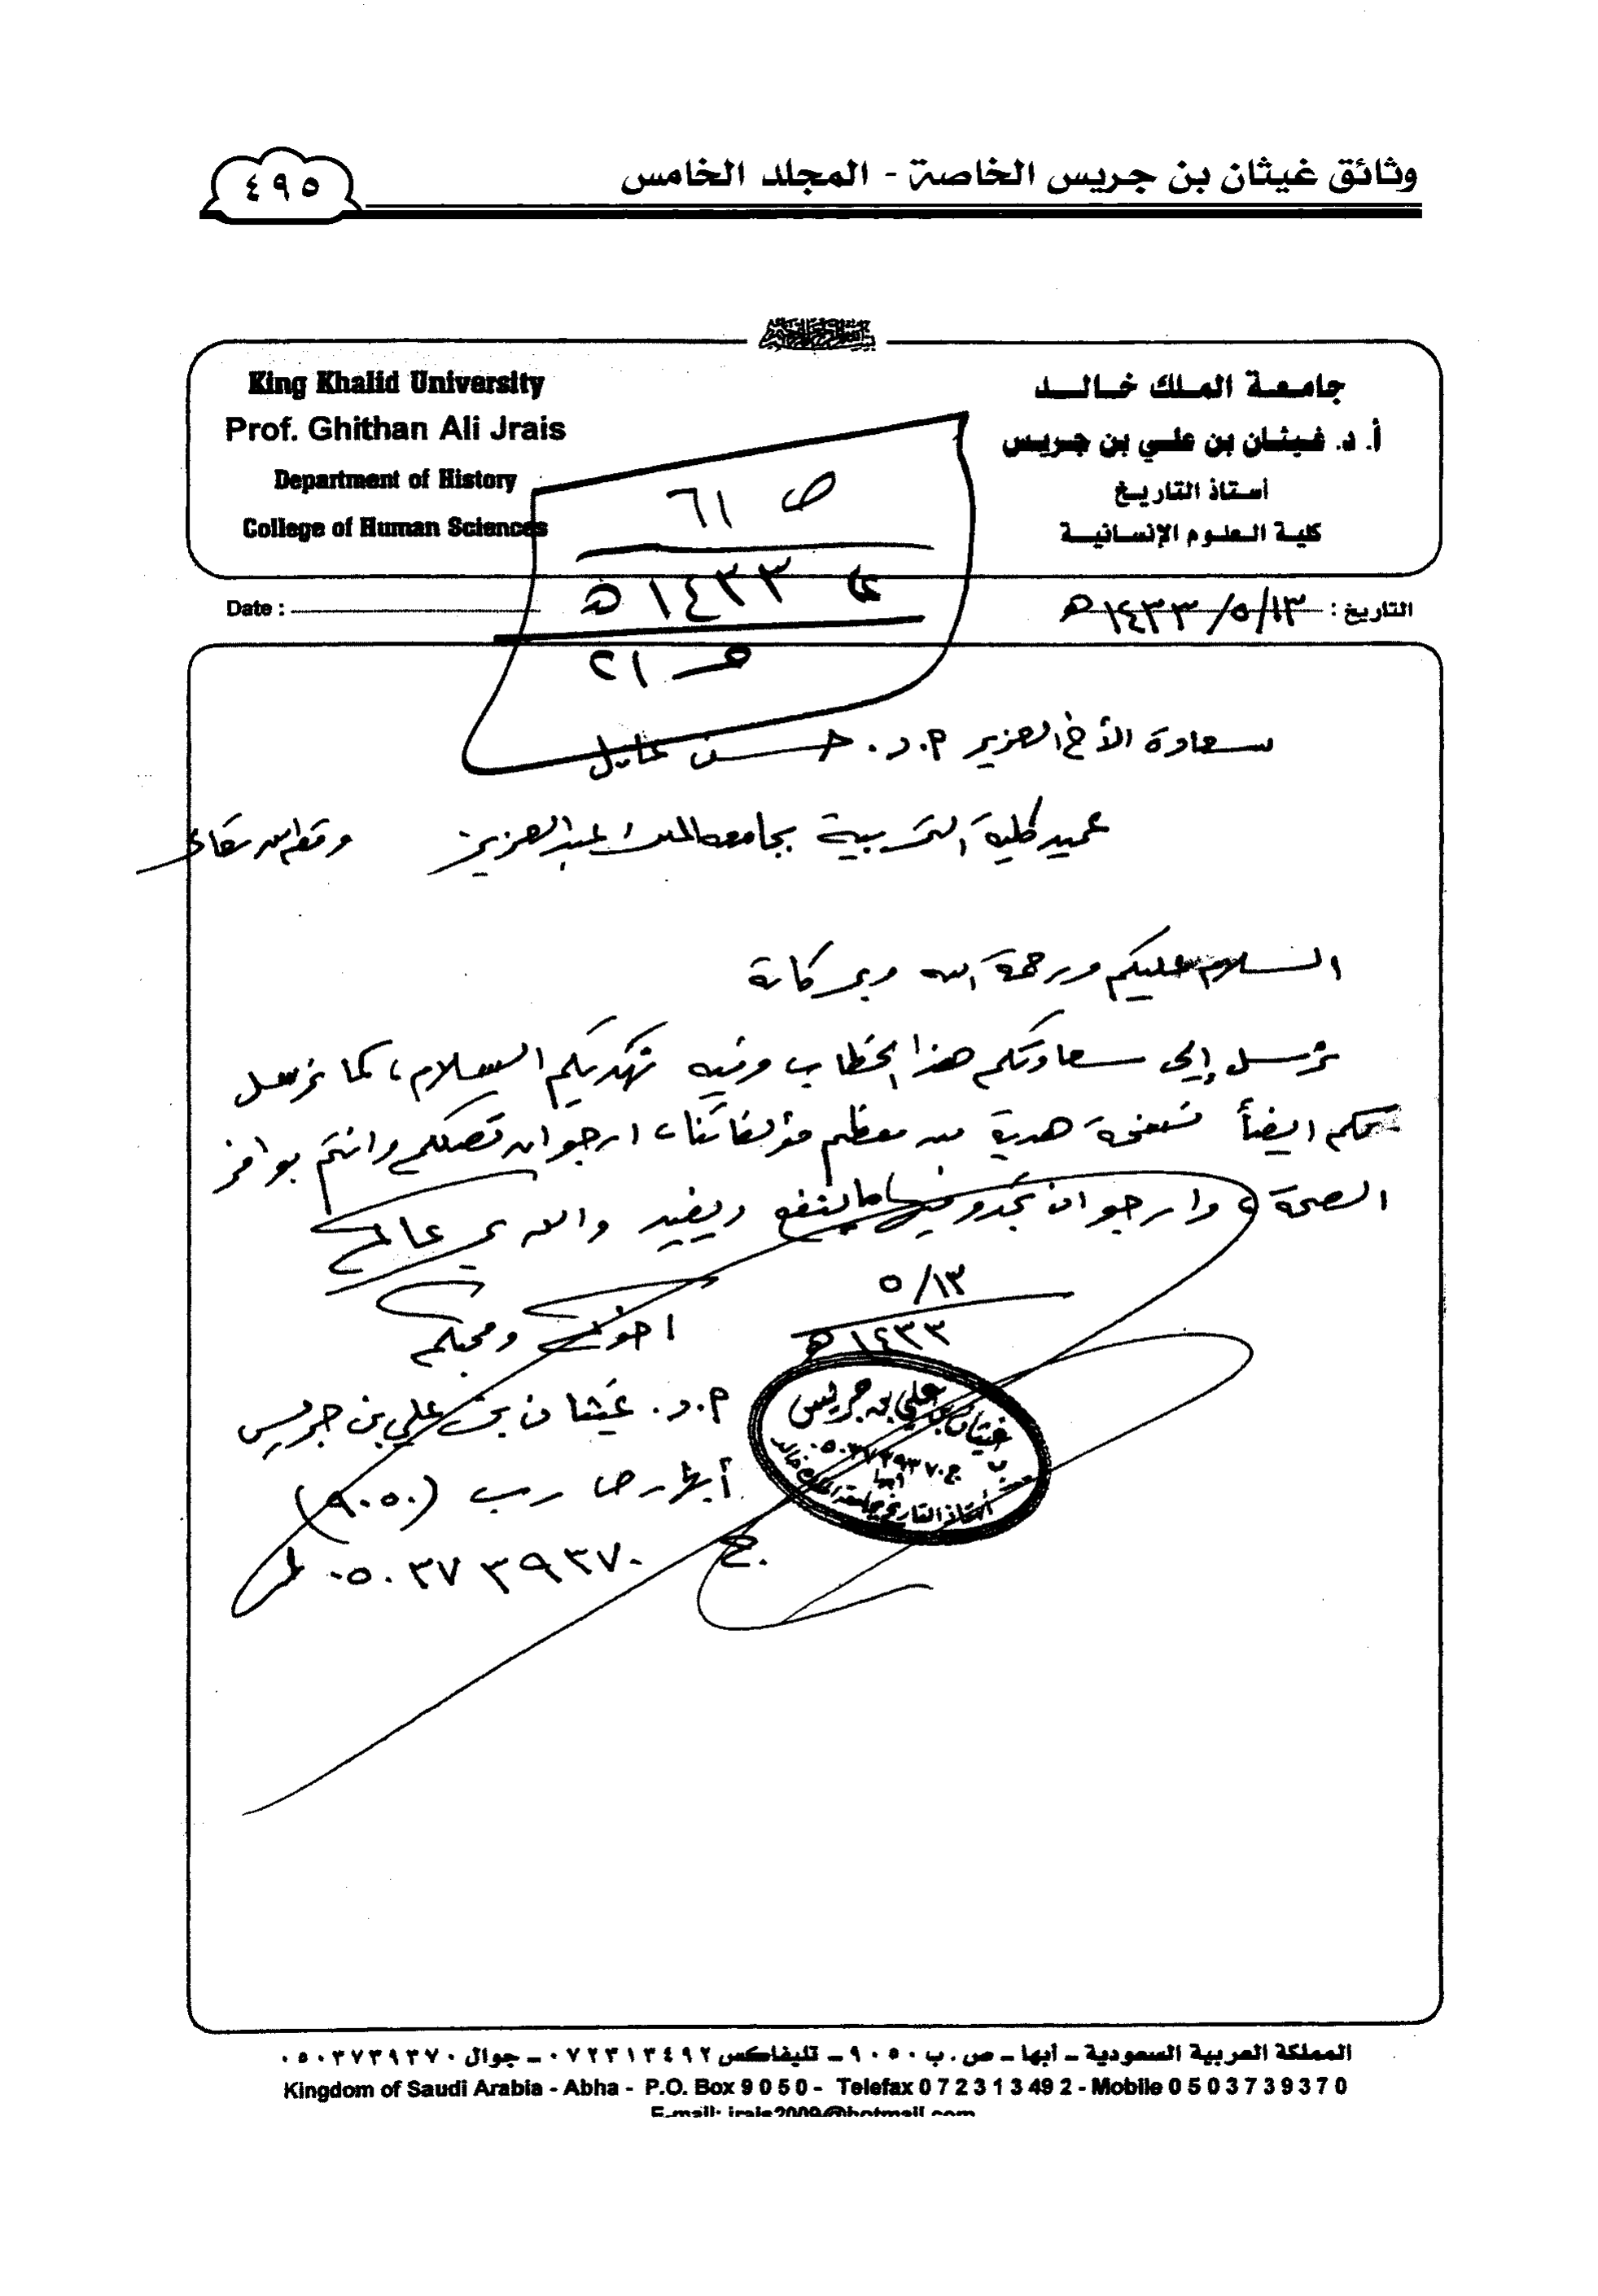 وثائق غيثان بن جريس الخاصة - المجلد الخامس
٤٩٥
King Khalid University
Prof. Ghithan Ali Jrais
Department of History
College of Human Sciences
جامعة الملك خالد
أ. د. غيثان بن علي بن جريس
أستاذ التاريخ
كلية العلوم الإنسانية
ص ٦١
١٤٣٣ هـ
٢١
Date :
التاريخ : ١٣/ ٥/ ١٤٣٣ هـ
سعادة الأخ العزيز أ.د. حسن عايل
عميد كلية التربية بجامعة الملك عبدالعزيز
السلام عليكم ورحمة الله وبركاته
نرسل إلى سعادتكم هذا الخطاب وفيه نهديكم السلام، كما نرسل
لكم ايضاً نسخة هدية من معظم مؤلفاتنا، ارجو ان تصلكم وانتم بوافر
الصحة، وارجو ان تجدوا فيها ما ينفع ويفيد والله يرعاكم
١٣/ ٥
١٤٣٣ هـ
اخوكم ومحبكم
أ.د. غيثان بن علي بن جريس
أبها ص ب (٩٠٥٠)
ج ٠٥٠٣٧٣٩٣٧٠
غيثان بن علي بن جريس
ج ٠٥٠٣٧٣٩٣٧٠
أبها
أستاذ التاريخ بجامعة الملك خالد
المملكة العربية السعودية ـ أبها ـ ص . ب ٩٠٥٠ ـ تليفاكس ٠٧٢٣١٣٤٩٢ ـ جوال ٠٥٠٣٧٣٩٣٧٠
Kingdom of Saudi Arabia - Abha - P.O. Box 9 0 5 0 - Telefax 0 7 2 3 1 3 49 2 - Mobile 0 5 0 3 7 3 9 3 7 0
E-mail: jrais2009@hotmail.com